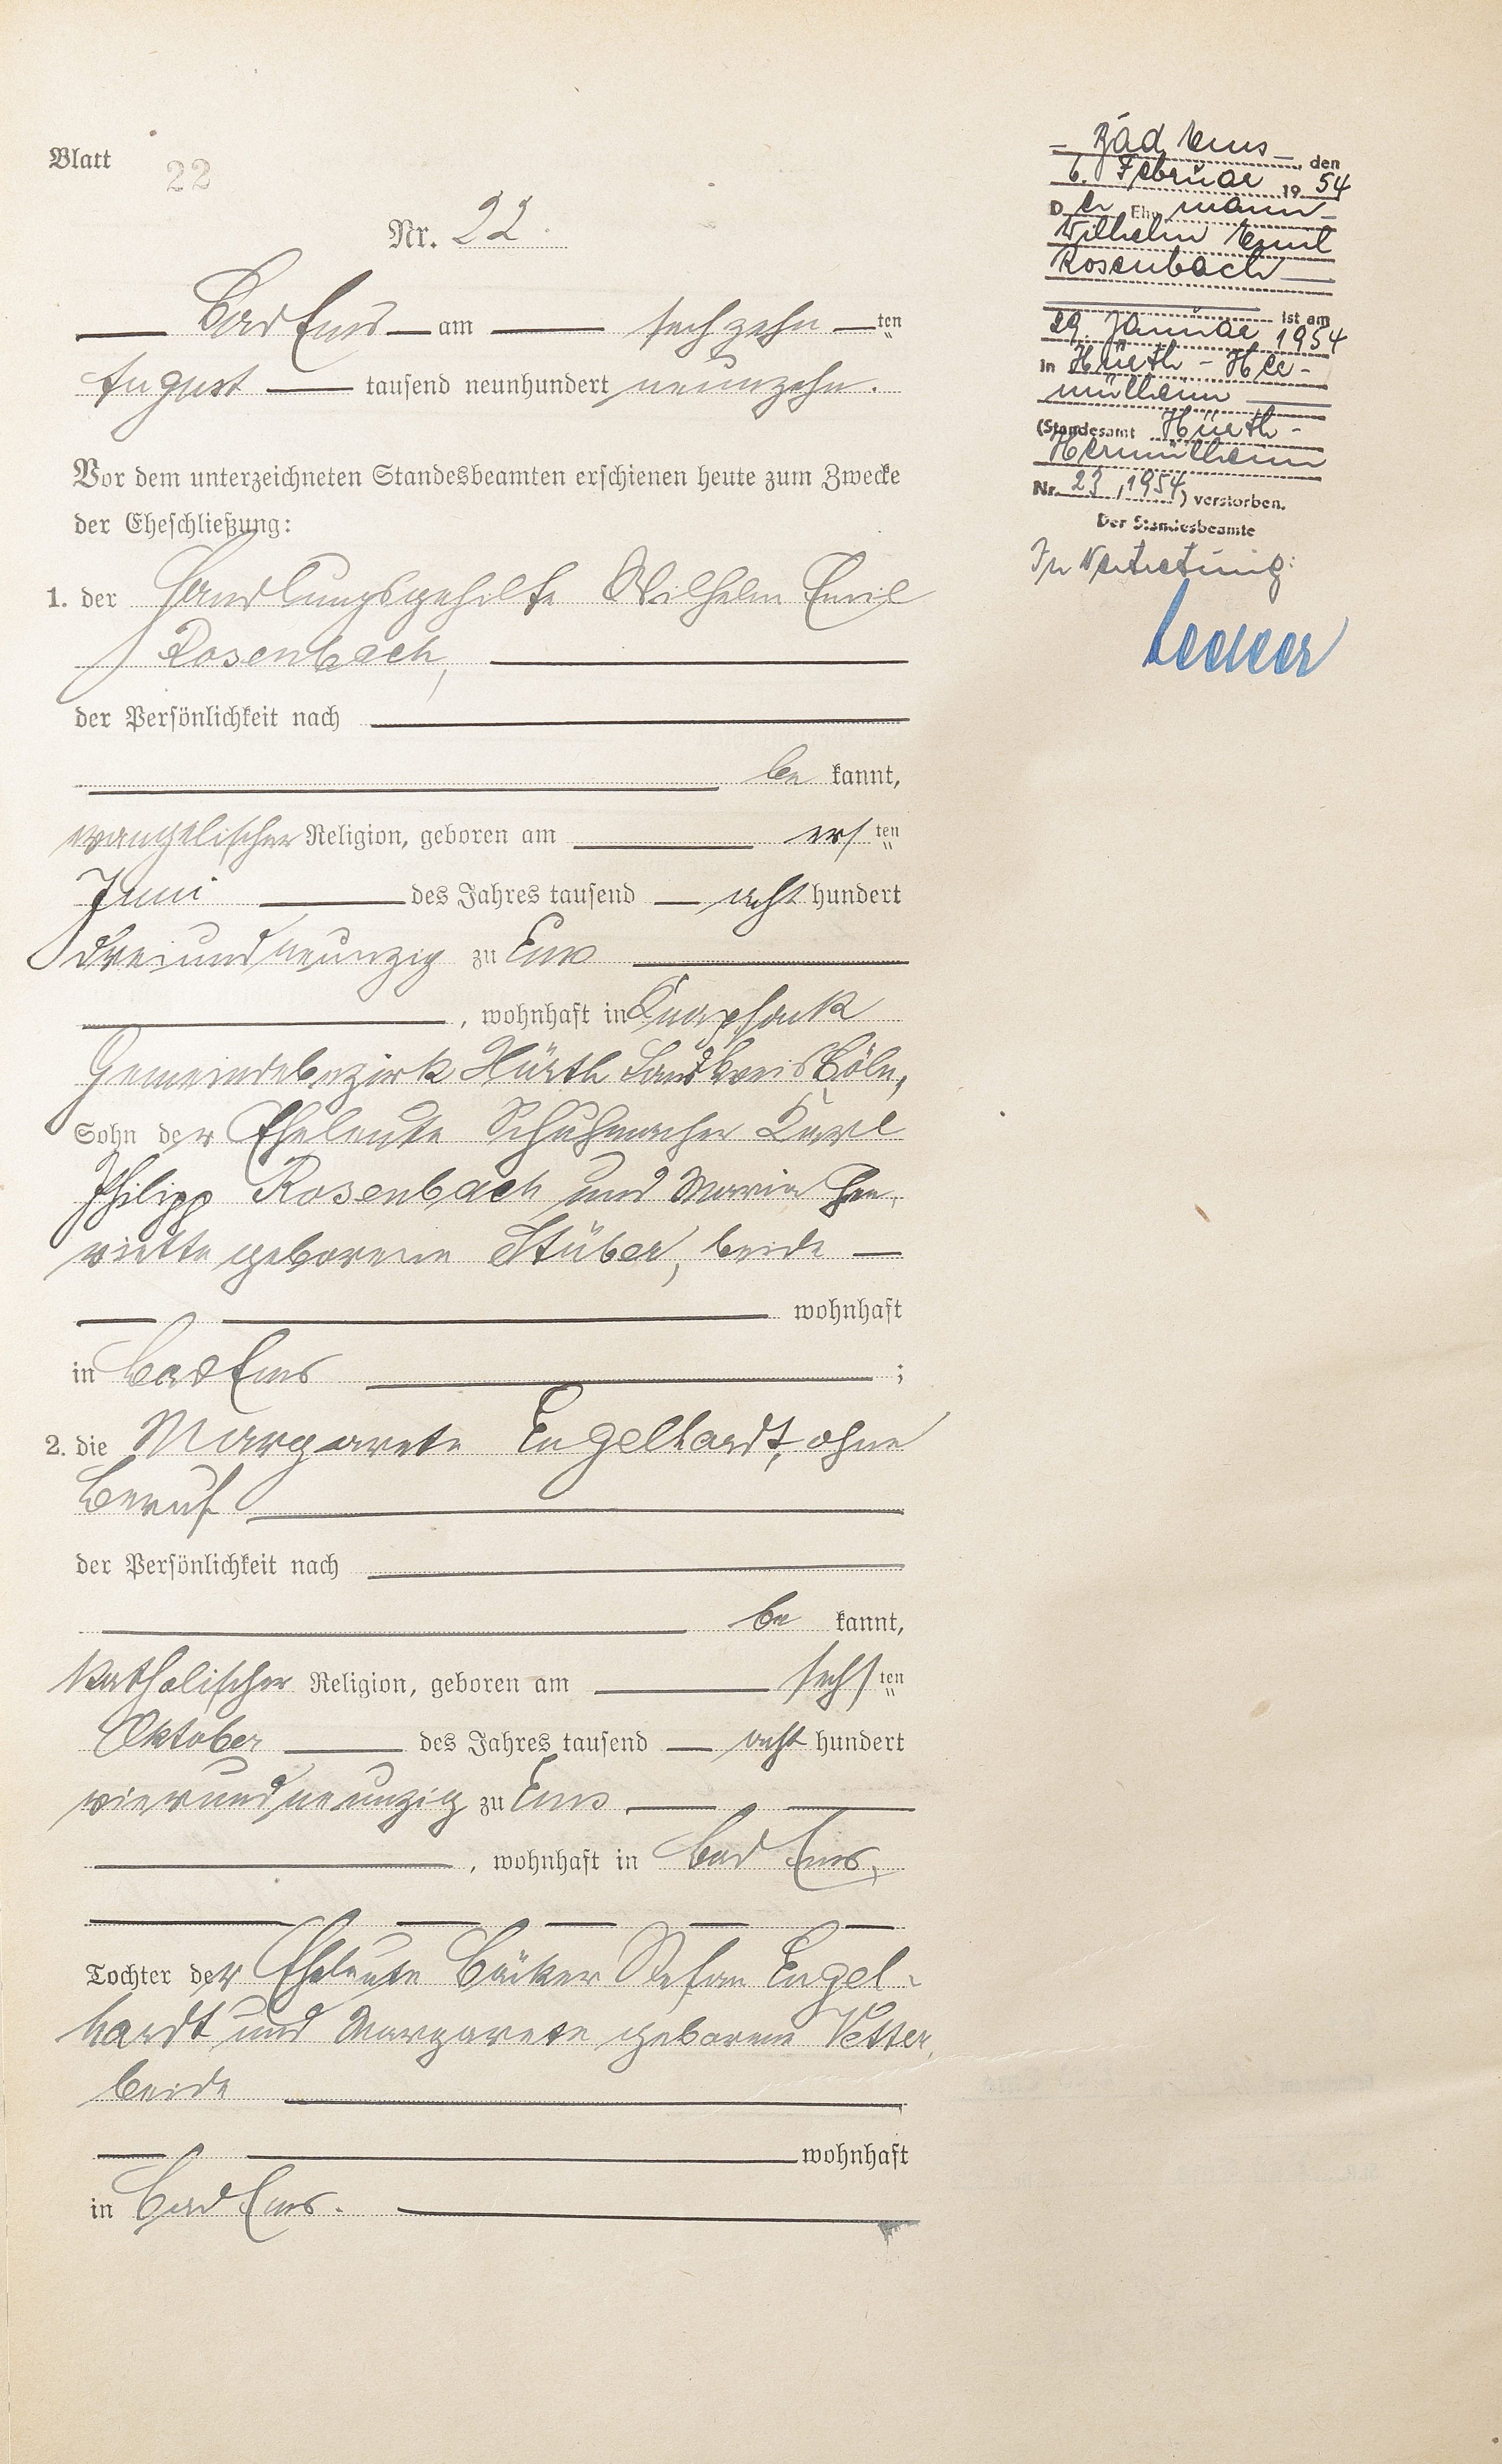 Blatt 22
Nr. 22.
Bad Ems am sechzehn ten
August tausend neunhundert neunzehn.
Vor dem unterzeichneten Standesbeamten erschienen heute zum Zwecke
der Eheschließung:
1. der Handlungsgehilfe Wilhelm Emil
Rosenbach,
der Persönlichkeit nach
be kannt,
evangelischer Religion, geboren am ers ten
Juni des Jahres tausend acht hundert
dreiundneunzig zu Ems
, wohnhaft in Knapsack
Gemeindebezirk Hürth Landkreis Cöln,
Sohn der Eheleute Schuhmacher Karl
Philipp Rosenbach und Maria Hen-
riette geborene Stüber, beide
wohnhaft
in Bad Ems ;
2. die Margarete Engelhardt, ohne
Beruf
der Persönlichkeit nach
be kannt,
katholischer Religion, geboren am sechs ten
Oktober des Jahres tausend acht hundert
vierundneunzig zu Ems
, wohnhaft in Bad Ems,
Tochter der Eheleute Bäcker Stefan Engel-
hardt und Margarete geborene Vetter,
beide
wohnhaft
in Bad Ems.
Bad Ems, den
6. Februar 1954
Der Ehemann
Wilhelm Emil
Rosenbach
ist am
29. Januar 1954
in Hürth-Her-
mülheim
(Standesamt Hürth-
Hermülheim
Nr. 23, 1954) verstorben.
Der Standesbeamte
In Vertretung: